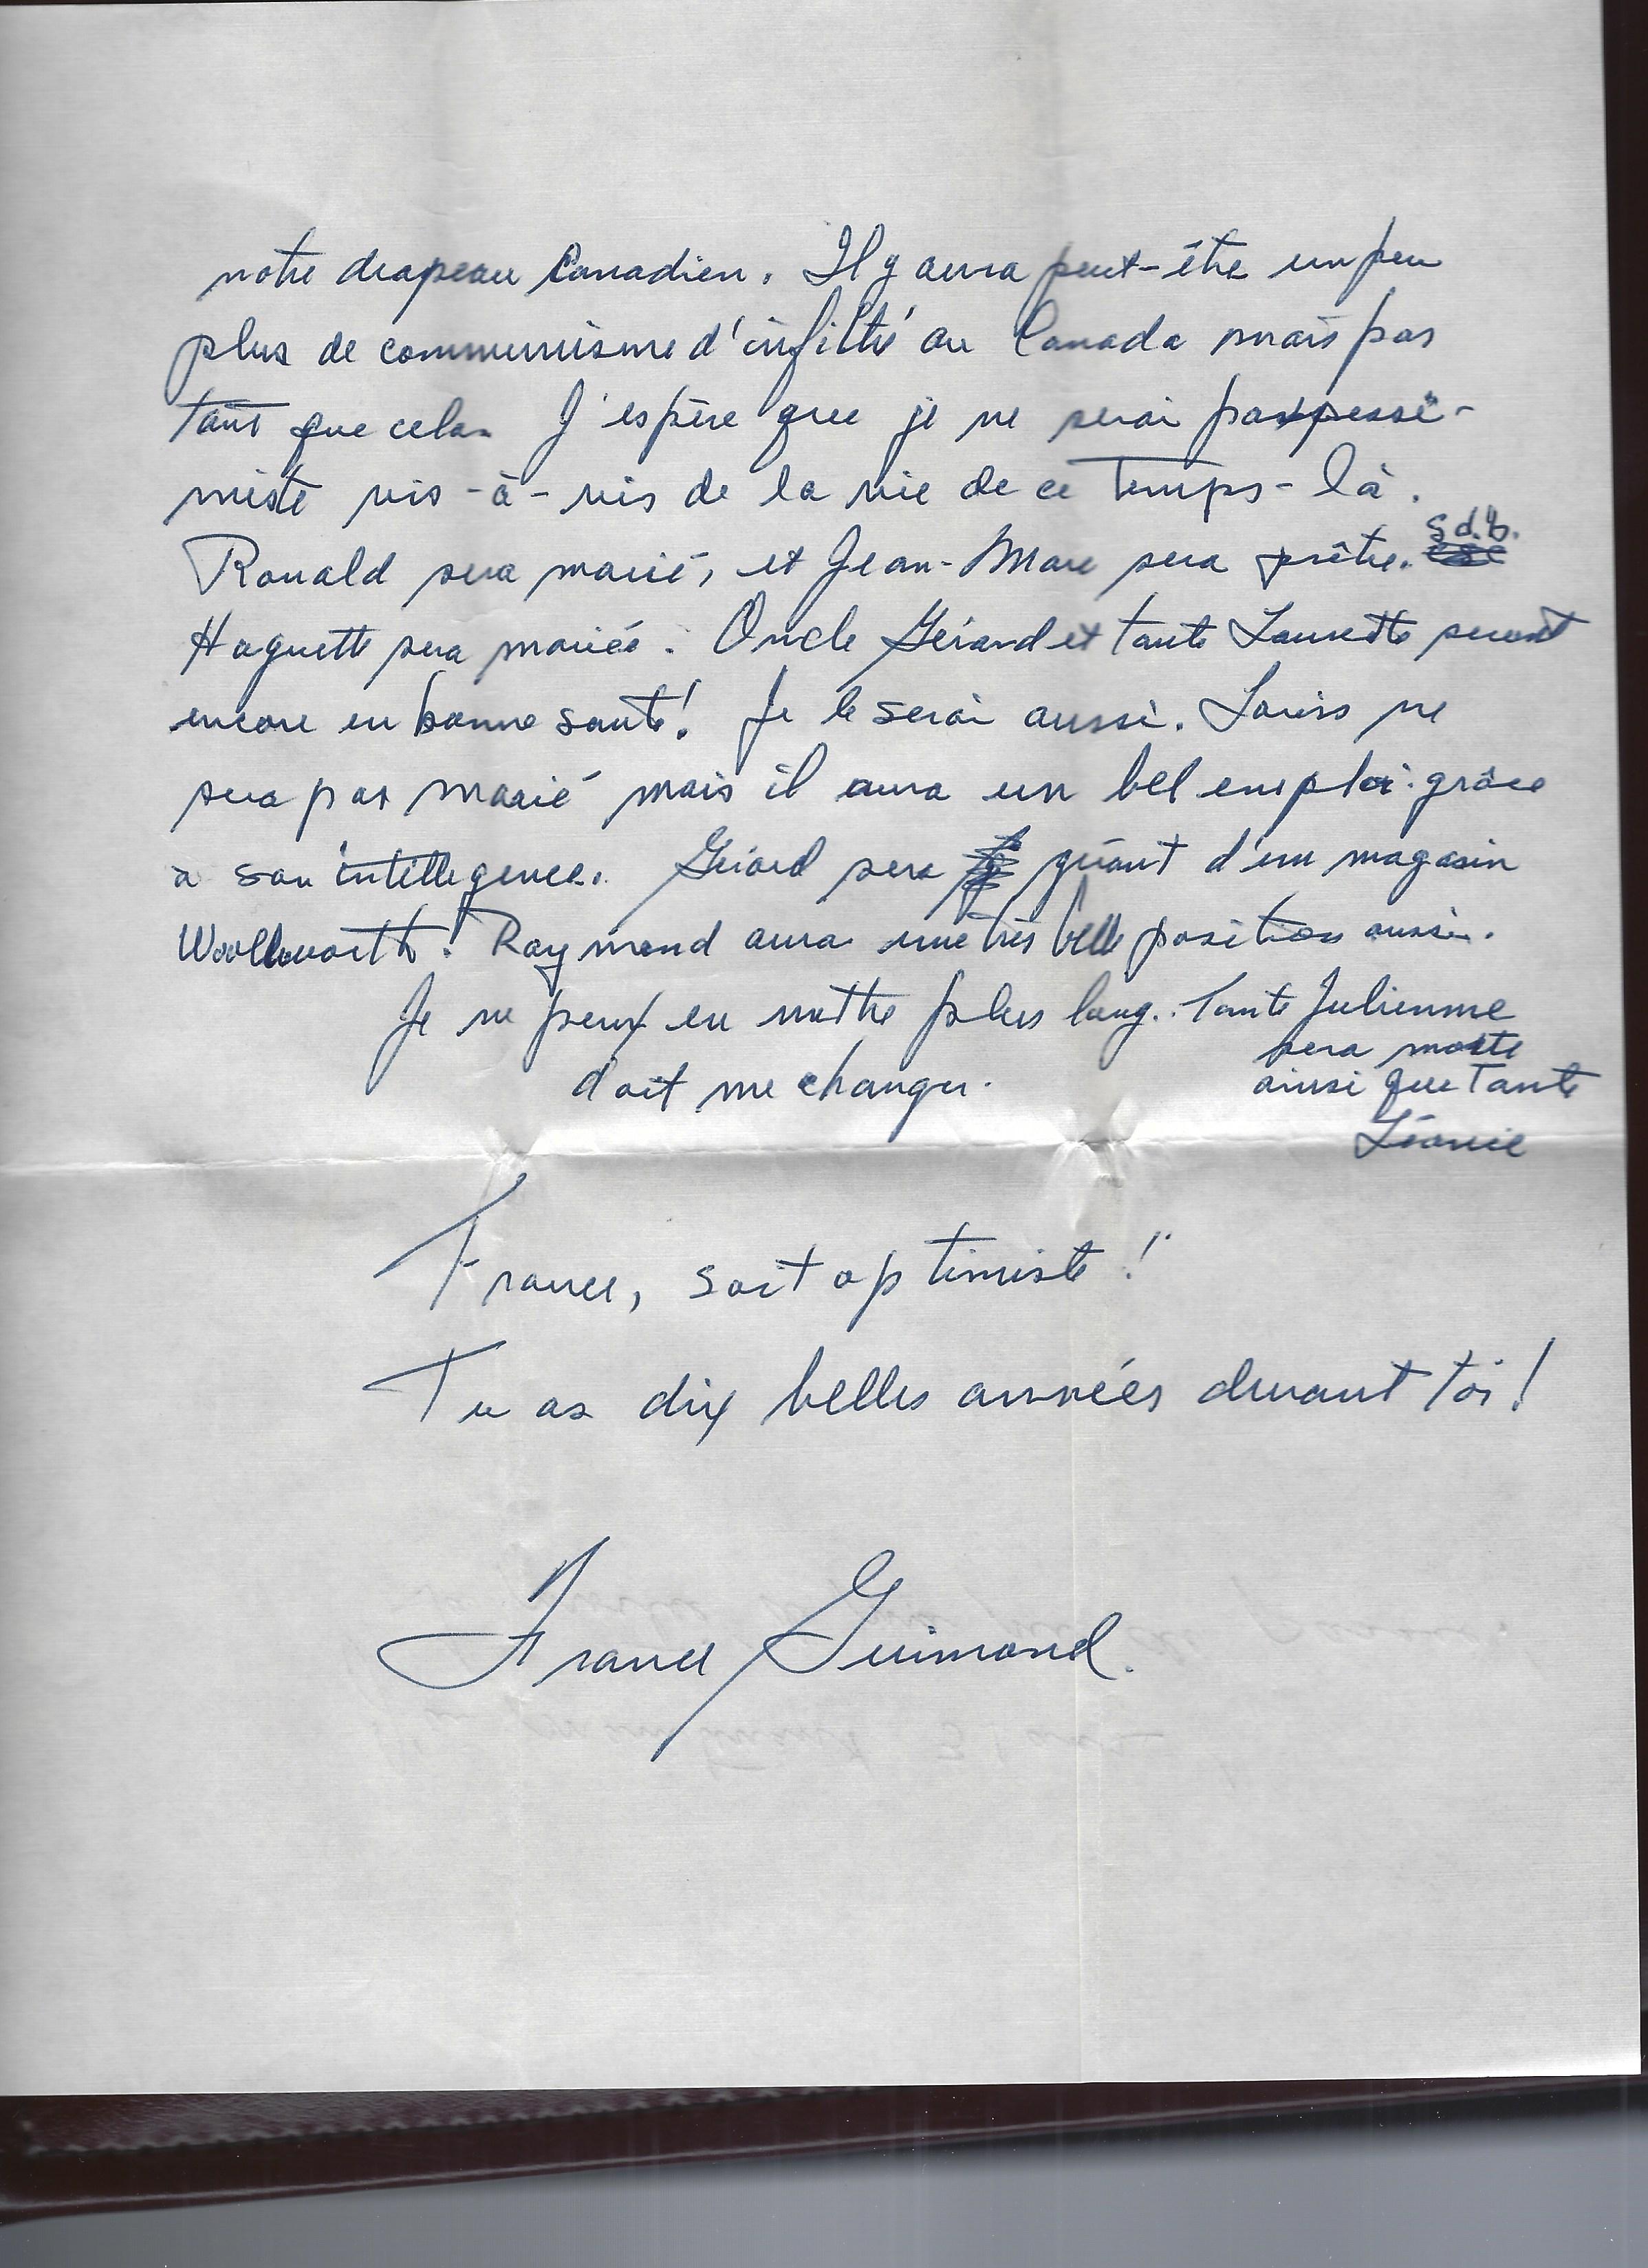 notre drapeau Canadien. Il y aura peut-être un peu
plus de communisme d'infiltré au Canada mais pas
tant que cela. J'espère que je ne serai pas pessi-
miste vis-à-vis de la vie de ce temps-là.
Ronald sera marié, et Jean-Marc sera prêtre. s.d.b.
Huguette sera mariée. Oncle Gérard et tante Laurette seront
encore en bonne santé! Je le serai aussi. Louis ne
sera pas marié mais il aura un bel emploi grâce
à son intellegence. Gérard sera gérant d'un magasin
Woolworth! Raymond aura une très belle position aussi.
Je ne peux en mettre plus long. Tante Julienne
sera morte
doit me changer. ainsi que Tante
Léonie
France, soit optimiste!
Tu as dix belles années devant toi!
France Guimond.